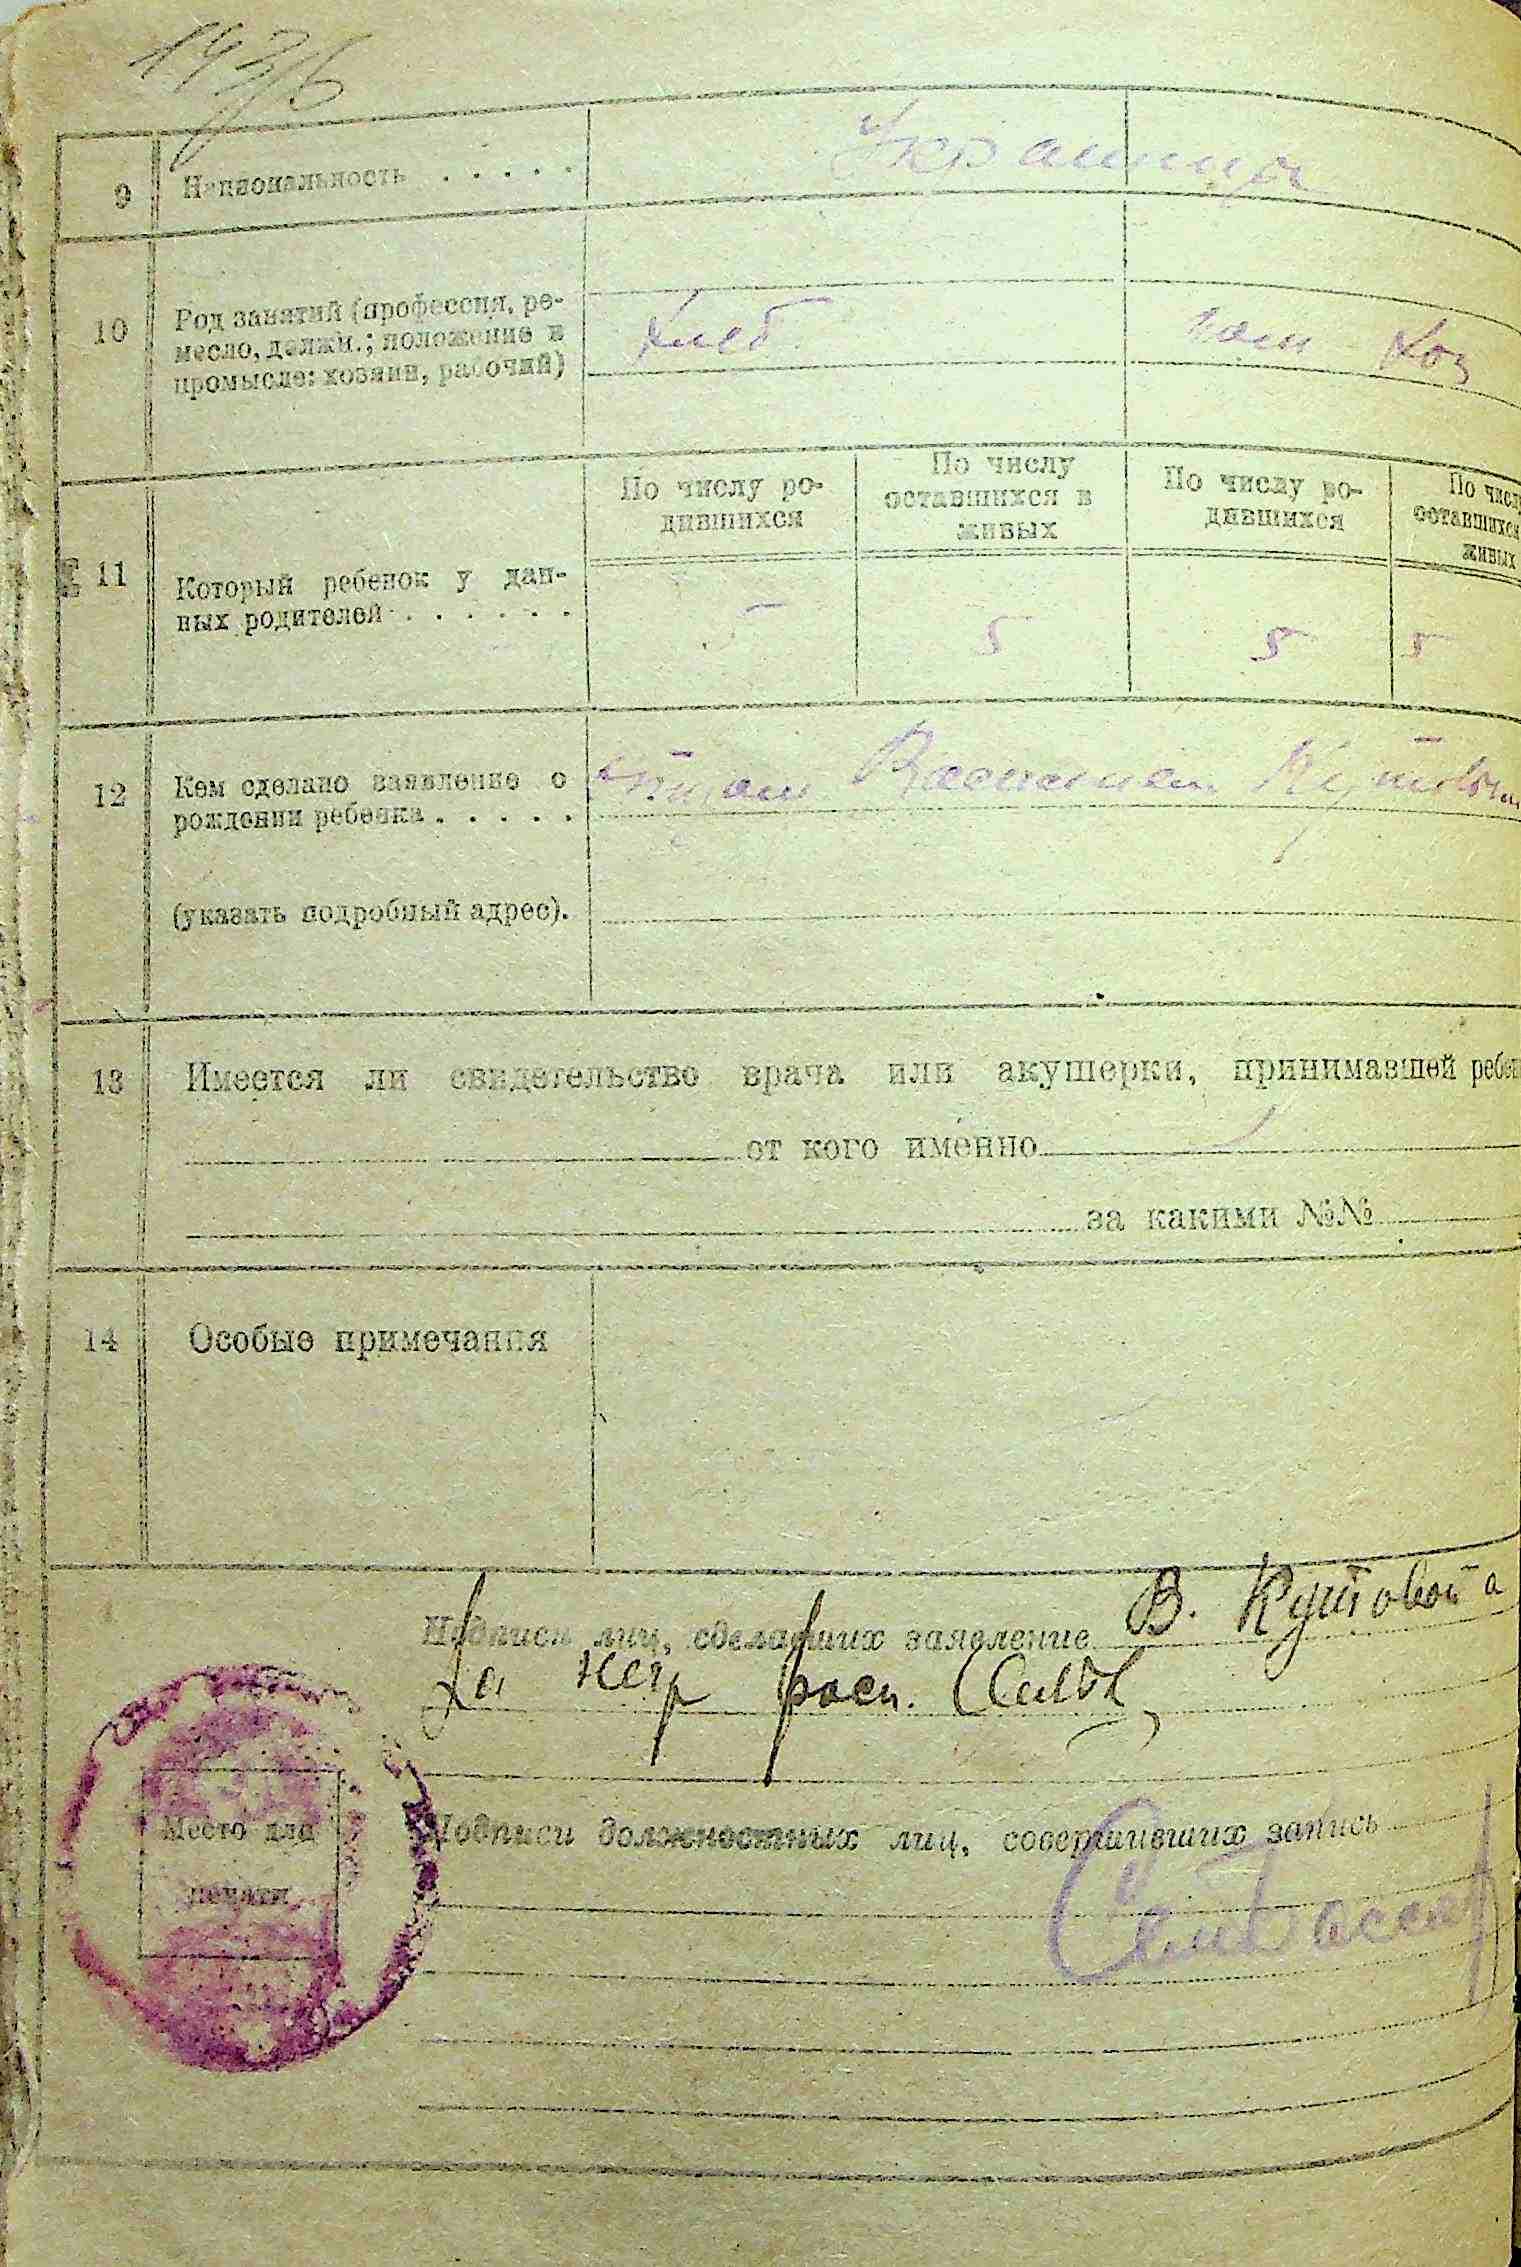 143/6
9 Национальность . . . . . Украинцы
10 Род занятий (профессия, ре-
месло, должн.; положение в
промысле: хозяин, рабочий)
Хлеб. дом хоз
По числу ро-
дившихся
По числу
оставшихся в
живых
По числу ро-
дившихся
По числу
оставшихся
живых
11 Который ребенок у дан-
ных родителей . . . . . .
5 5 5 5
12 Кем сделано заявление о
рождении ребенка . . . . .
отцом Василием Кутовым
(указать подробный адрес).
13 Имеется ли свидетельство врача или акушерки, принимавшей ребен
от кого именно
за какими №№
14 Особые примечания
Подписи лиц, сделавших заявление В. Кутовой а
за негр расп.
Место для
печати
Подписи должностных лиц, совершивших запись